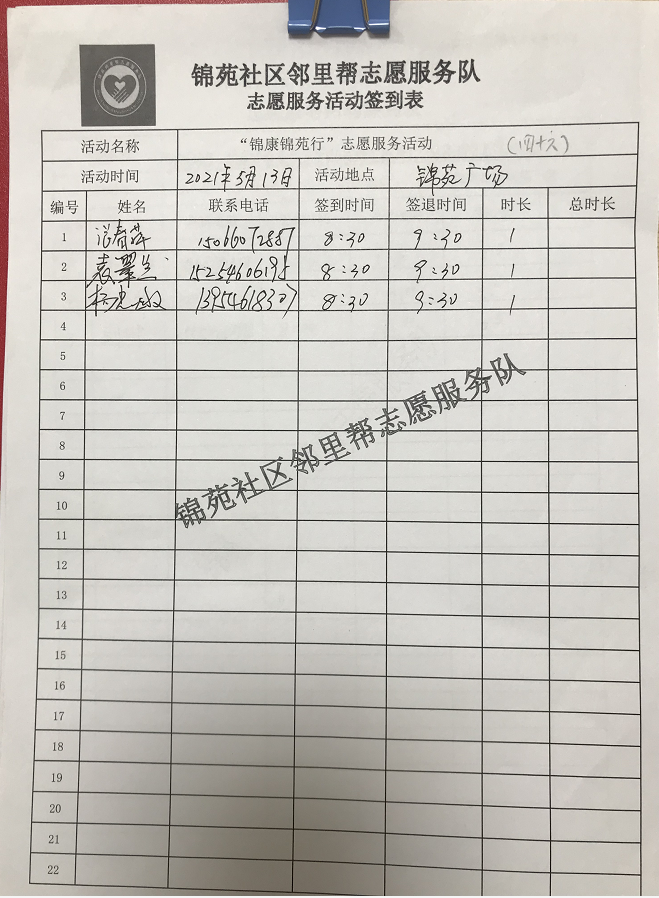 锦苑社区邻里帮志愿服务队
志愿服务活动签到表
活动名称 “锦康锦苑行”志愿服务活动 (四十六)
活动时间 2021年5月13日 活动地点 锦苑广场
编号 姓名 联系电话 签到时间 签退时间 时长 总时长
1 15066072887 8:30 9:30 1
2 袁翠兰 15254606195 8:30 9:30 1
3 13954618307 8:30 9:30 1
4
5
6
7
8
9
10
11
12
13
14
15
16
17
18
19
20
21
22
锦苑社区邻里帮志愿服务队